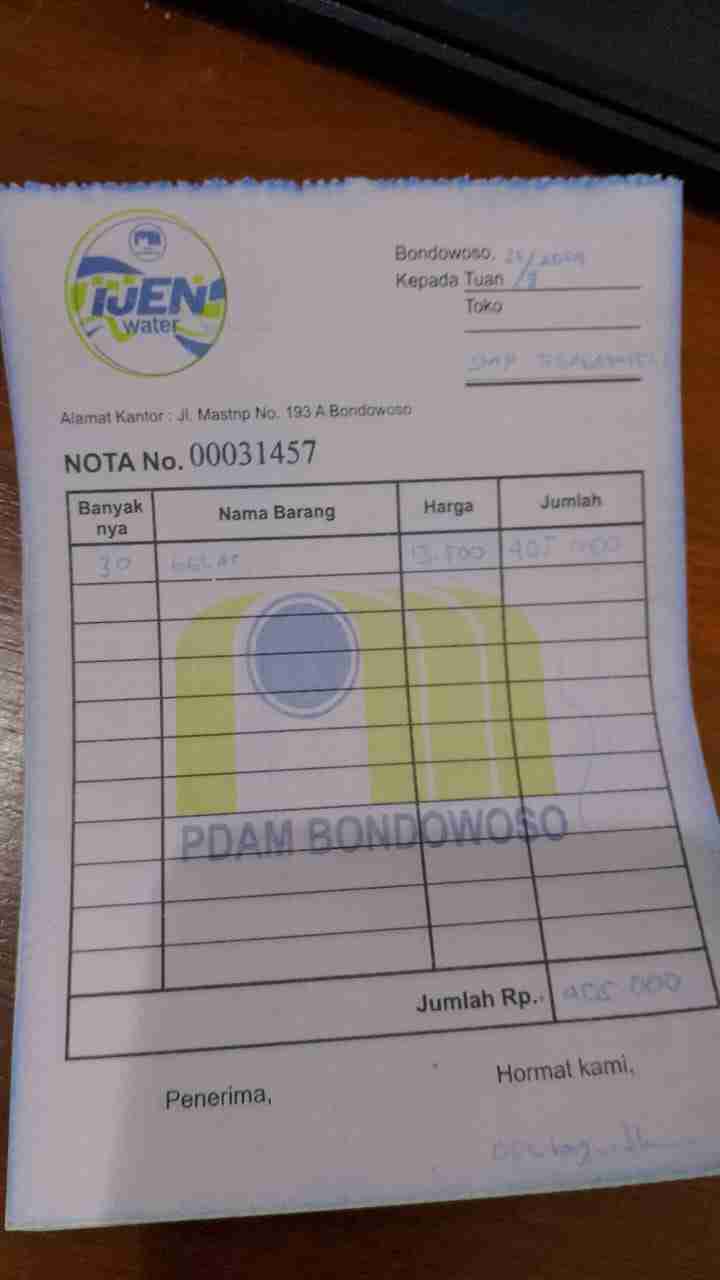 IJEN
water
Bondowoso,
Kepada Tuan
Toko
Alamat Kantor : Jl. Mastrip No. 193 A Bondowoso
NOTA No. 00031457
Banyak nya Nama Barang Harga Jumlah
30 GELAS 13.500 405 000
PDAM BONDOWOSO
Jumlah Rp. 405 000
Penerima,
Hormat kami,